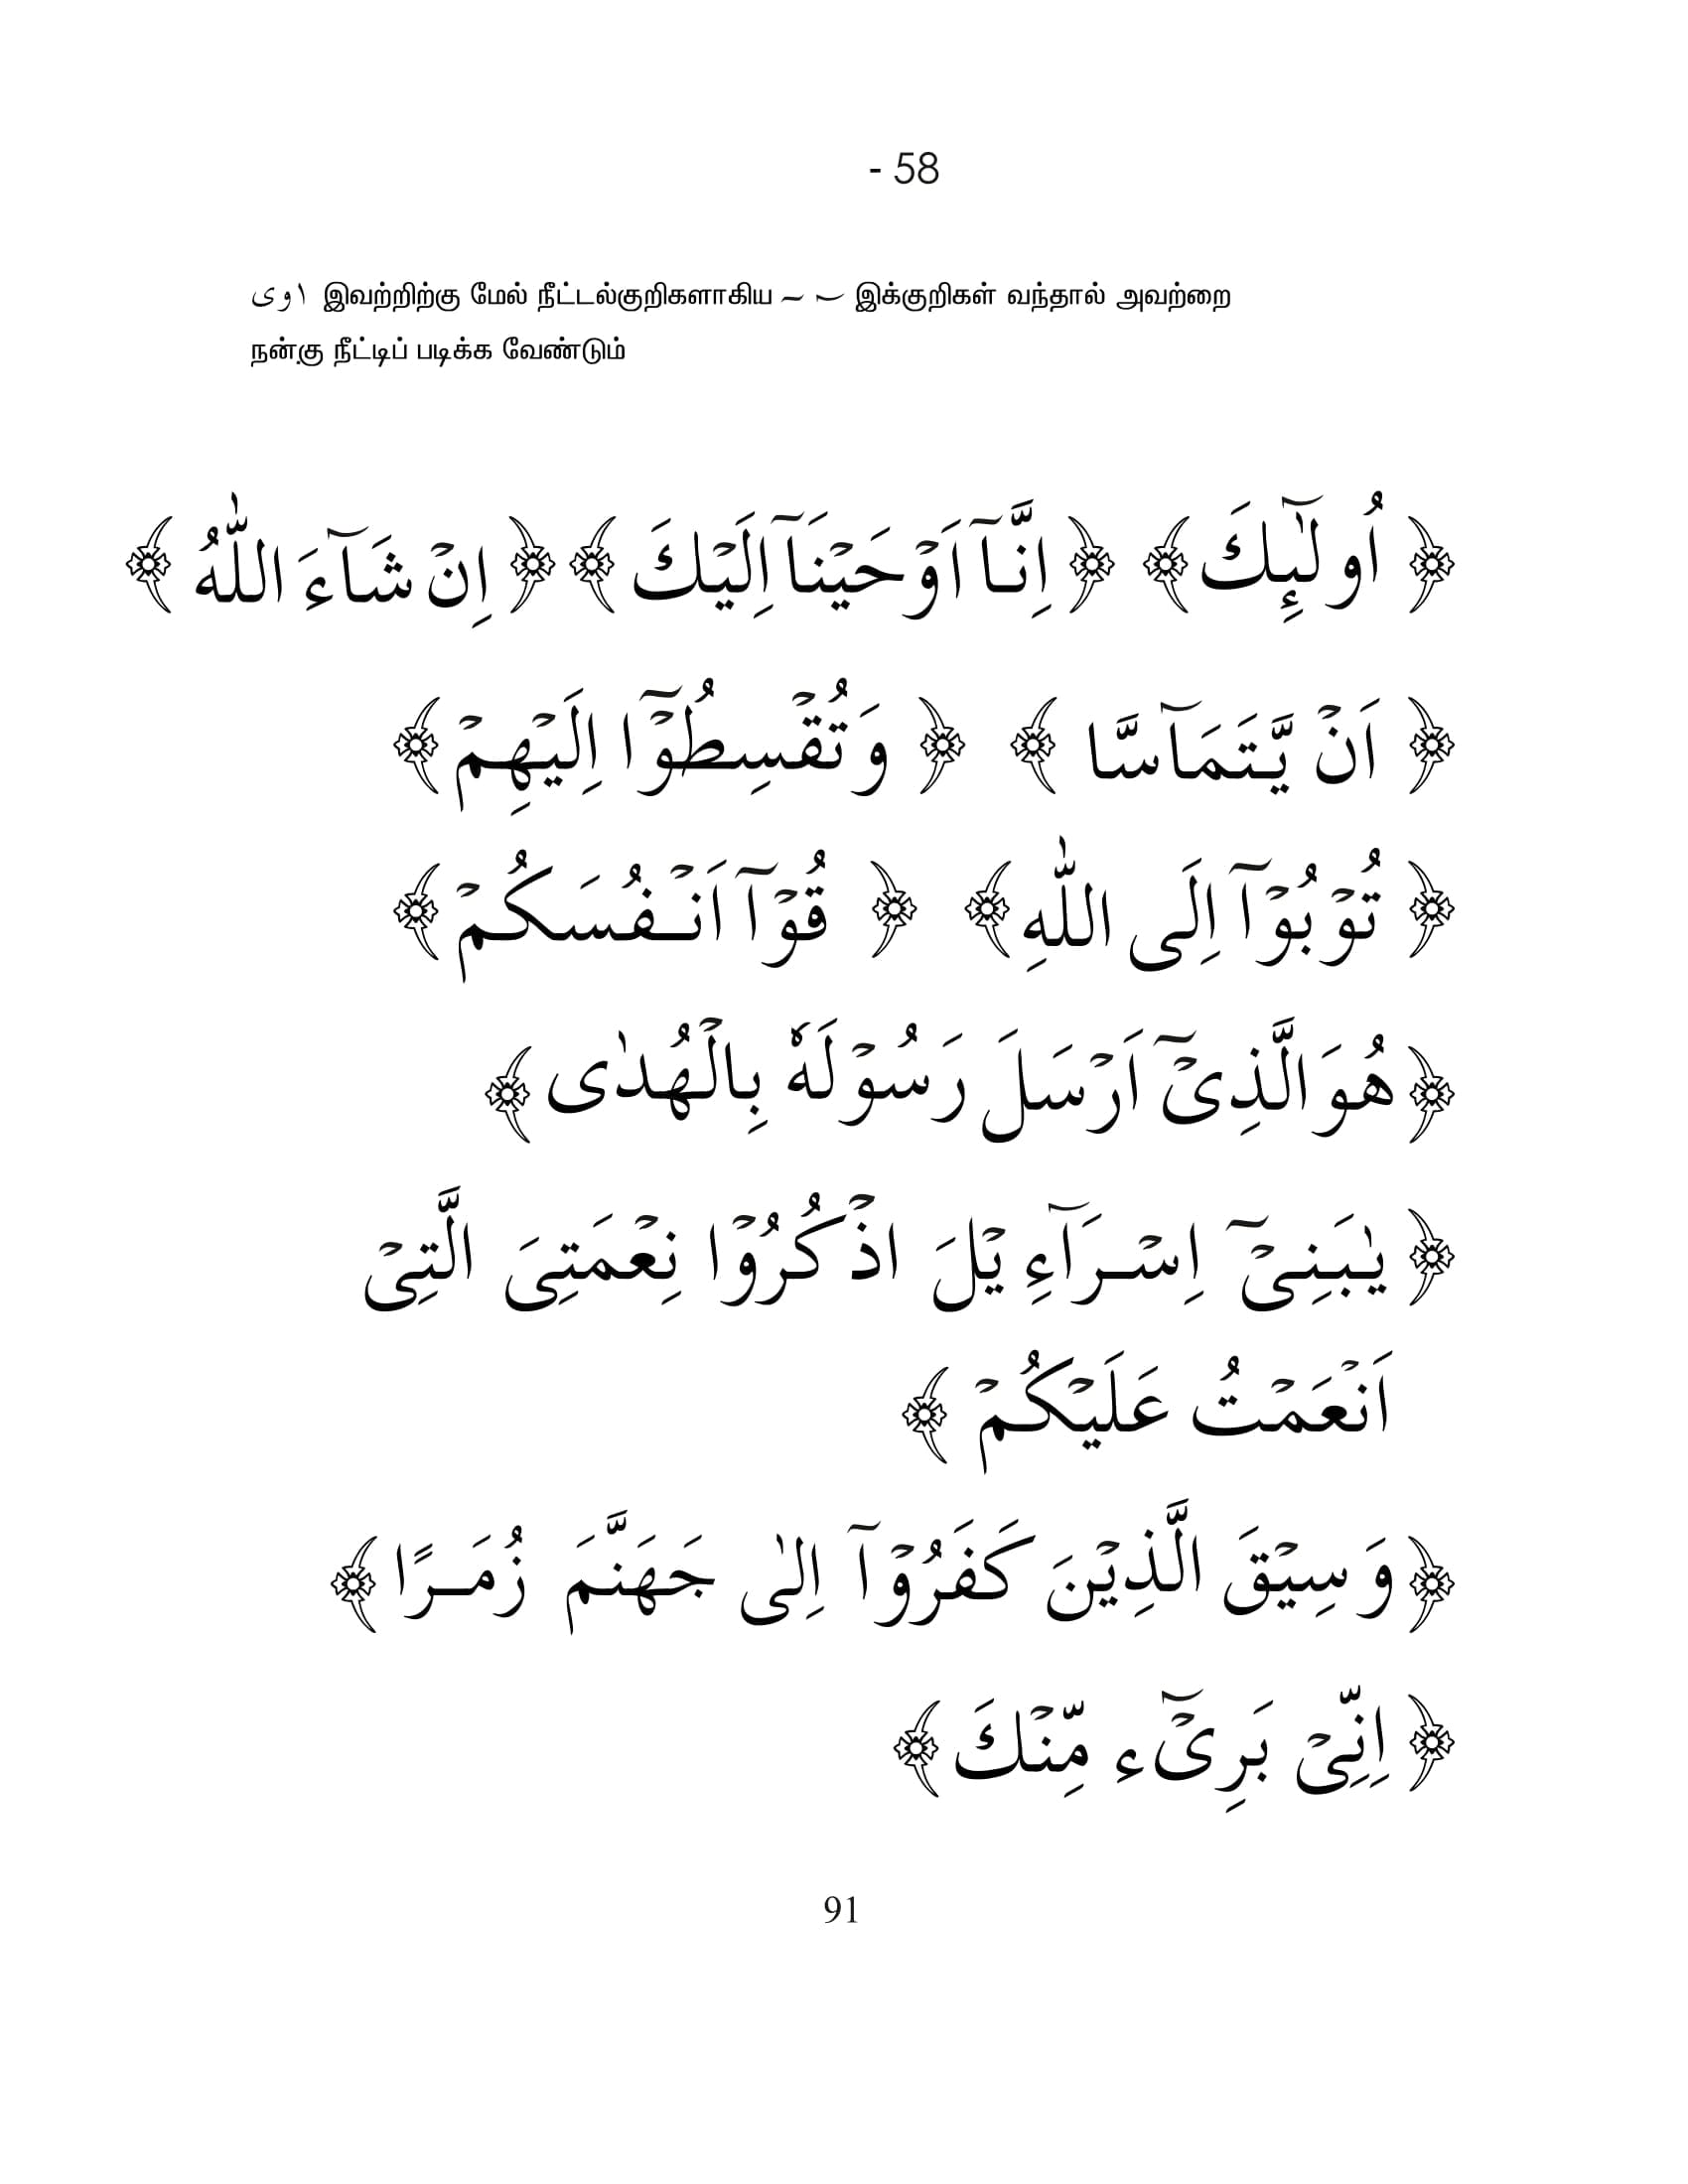 - 58
ا و ى இவற்றிற்கு மேல் நீட்டல்குறிகளாகிய ~ ~ இக்குறிகள் வந்தால் அவற்றை
நன்கு நீட்டிப் படிக்க வேண்டும்
﴿ اُولٰٓئِكَ﴾ ﴿ اِنَّاۤ اَوۡحَيۡنَاۤ اِلَيۡكَ ﴾﴿ اِنۡ شَآءَ اللّٰهُ ﴾
﴿ اَنۡ يَّتَمَآسَّا ﴾ ﴿ وَ تُقۡسِطُوۡۤا اِلَيۡهِمۡ ﴾
﴿ تُوۡبُوۡاۤ اِلَى اللّٰهِ﴾ ﴿ قُوۡاۤ اَنۡفُسَكُمۡ ﴾
﴿ هُوَ الَّذِىۡۤ اَرۡسَلَ رَسُوۡلَهٗ بِالۡهُدٰى ﴾
﴿ يٰبَنِىۡۤ اِسۡرَآءِيۡلَ اذۡكُرُوۡا نِعۡمَتِىَ الَّتِىۡ
اَنۡعَمۡتُ عَلَيۡكُمۡ ﴾
﴿ وَ سِيۡقَ الَّذِيۡنَ كَفَرُوۡاۤ اِلٰى جَهَنَّمَ زُمَرًا ﴾
﴿ اِنِّىۡ بَرِىۡٓء مِّنۡكَ ﴾
91